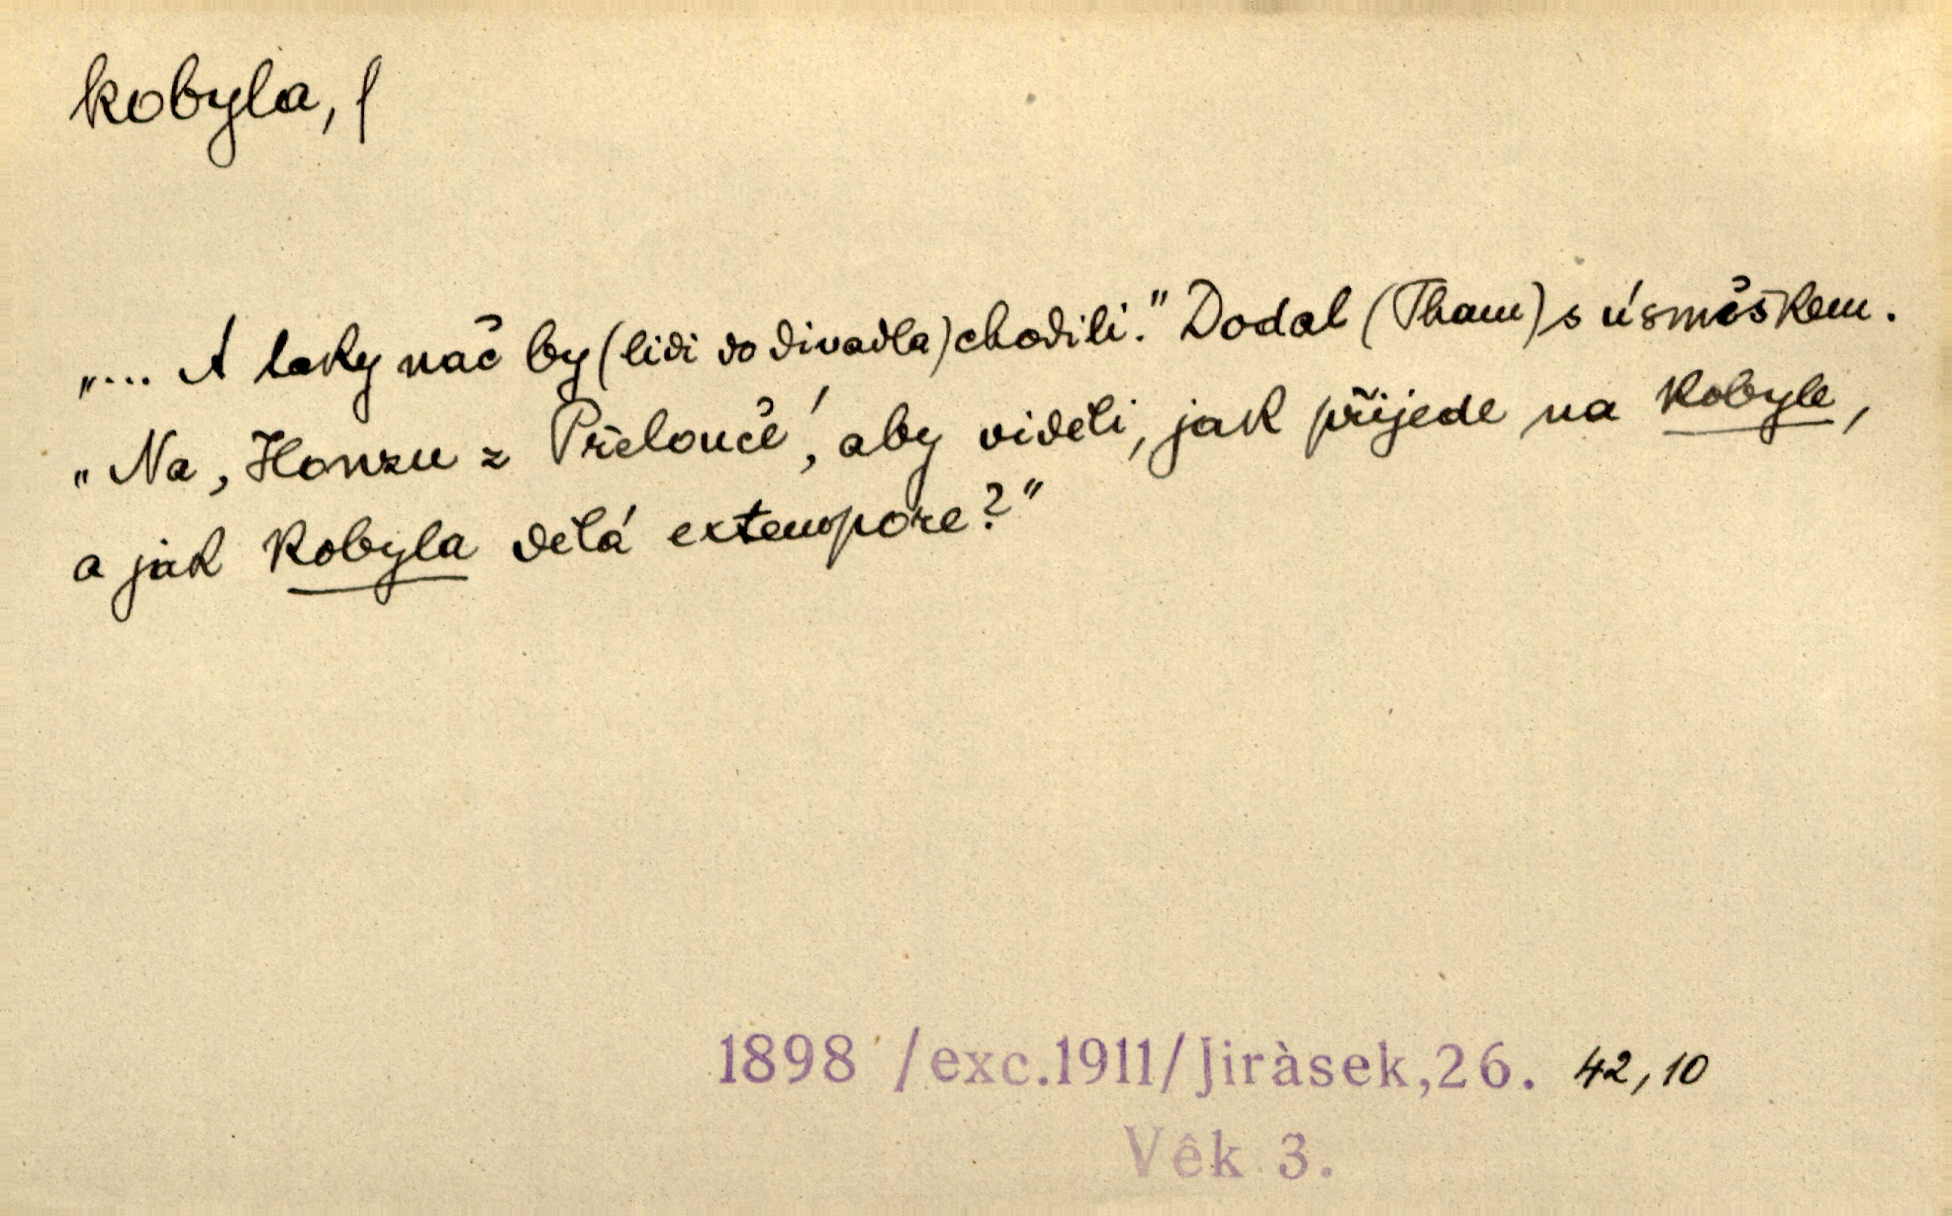 kobyla, f
„... A taky nač by (lidi do divadla) chodili." Dodal (Tham) s úsměškem.
„Na ,Honzu z Přelouče', aby viděli, jak přijede na kobyle,
a jak kobyla dělá extempore?"
1898 /exc.1911/Jiràsek,26. 42,10
Vêk 3.